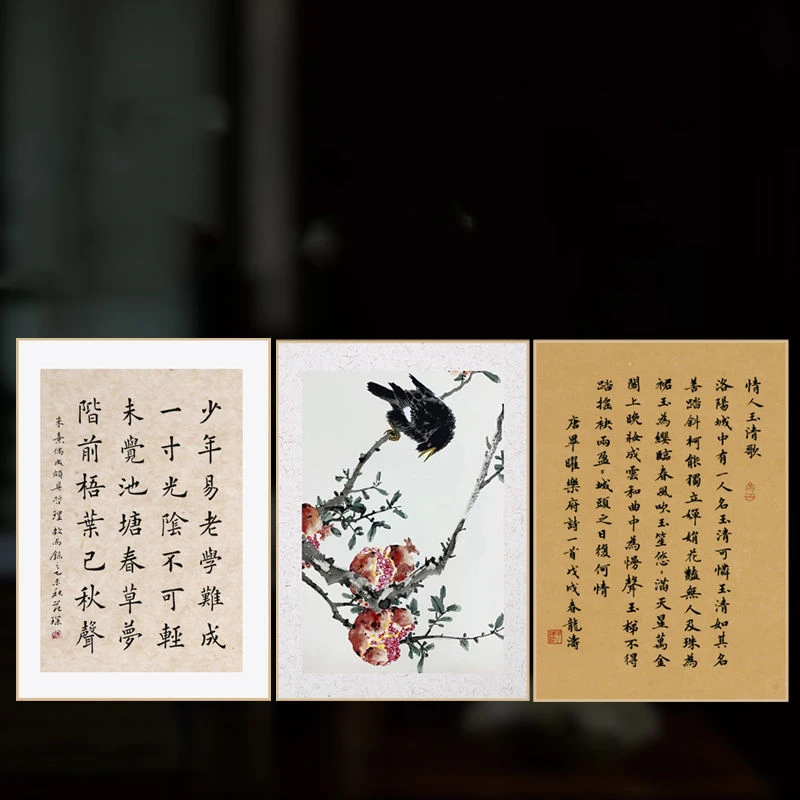 少年易老學難成
一寸光陰不可輕
未覺池塘春草夢
階前梧葉已秋聲
朱熹偶成頗具哲理故而錄之乙未秋
情人玉清歌
洛陽城中有一人名玉清可憐玉清如其名
善踏斜柯能獨立嬋娟花豔無人及珠為
裙玉為纓臨春風吹玉笙悠〻滿天星金
閣上晚妝成雲和曲中為慢聲玉梯不得
踏搖袂兩盈〻城頭之日復何情
唐畢曜樂府詩一首戊戌春龍濤